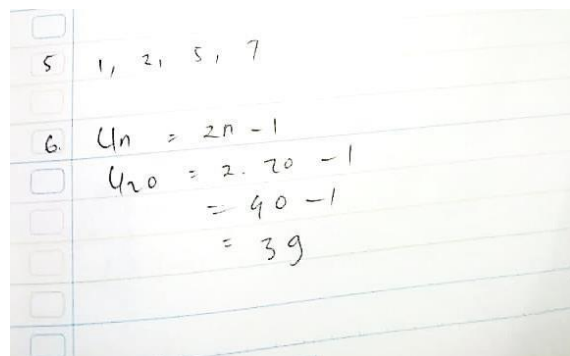 5 1, 2, 5, 7
6. Un = 2n - 1
U20 = 2. 20 - 1
= 40 - 1
= 39